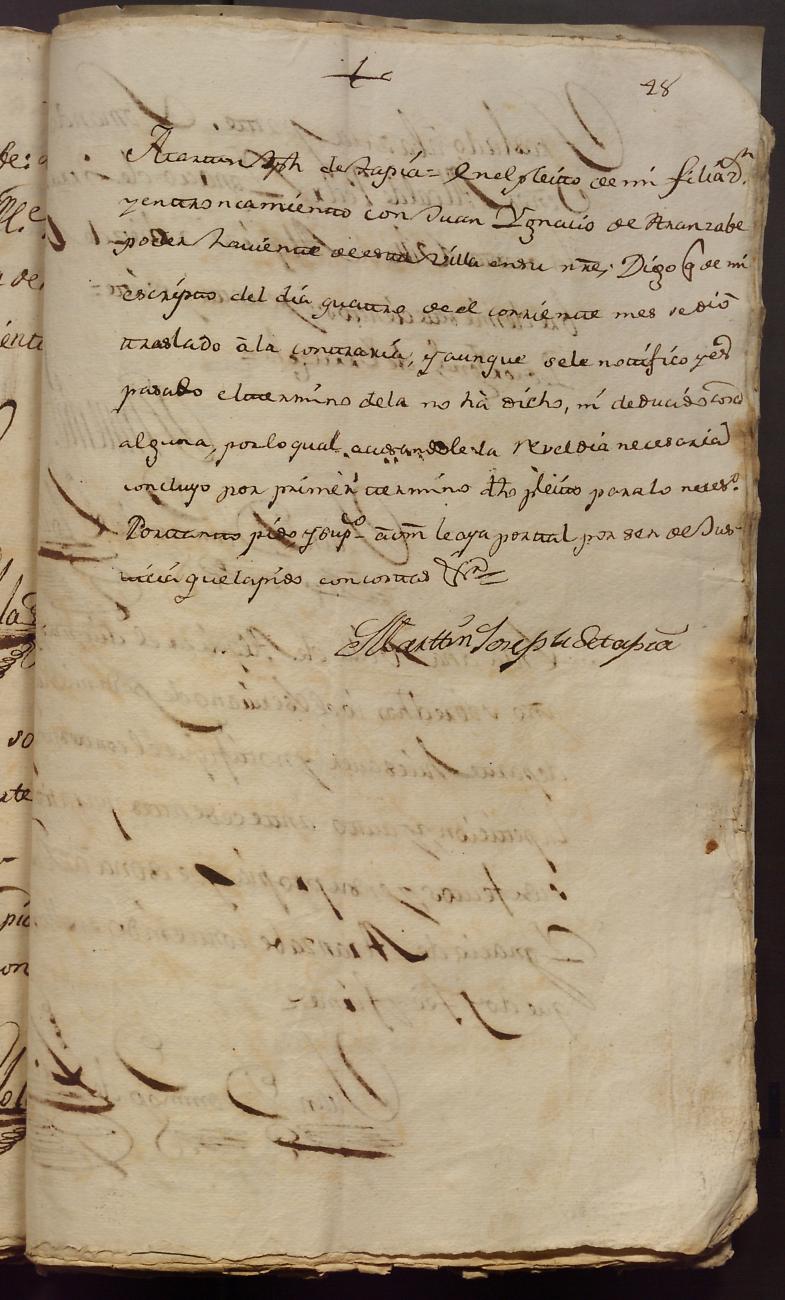 48
Martin Jph de tapia = en el pleito de mi filiaon.
y enttroncamiento con Juan Ygnacio de Aranzabe
poder haviente de esta Villa en su nre; Digo q de mi
escripto del dia quattro de el corriente mes se dió
ttraslado â la contraria, y aunque se le nottifico y es
pasado el ttermino de la no hà dicho, ni deducido cosa
alguna, por lo qual acusandole la reveldia necesaria
concluyo por primer ttermino dho pleito para lo neceso.
Por ttantto pido y supco â vm le aya por tal por ser de Jus-
ticia que la pido con costtas Vra=
Marttin Joseph de tapia